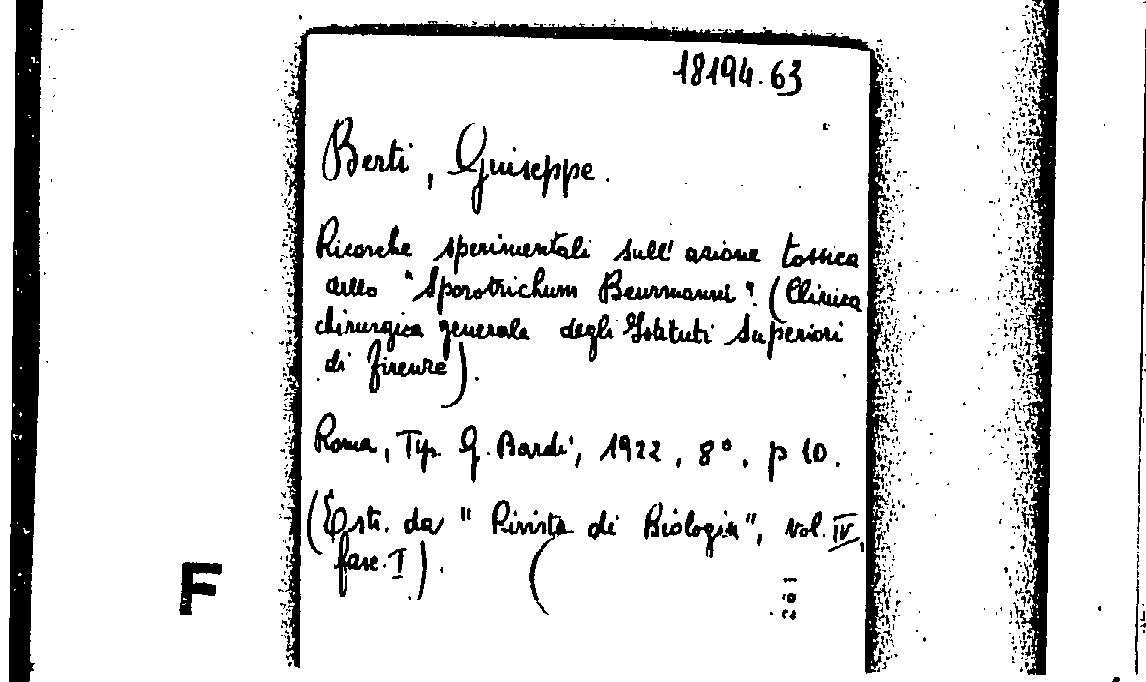 18194.63
Berti, Giuseppe.
Ricerche sperimentali sull'azione tossica
dello "Sporotrichum Beurmanni". (Clinica
chirurgica generale degli Istituti Superiori
di Firenze).
Roma, Tip. G. Bardi, 1922, 8°, p 10.
(Estr. da "Rivista di Biologia", vol. IV,
fasc. I).
F